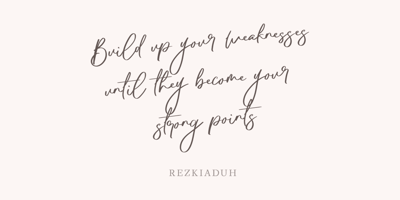 Build up your weaknesses
until they become your
strong points
REZKIADUH